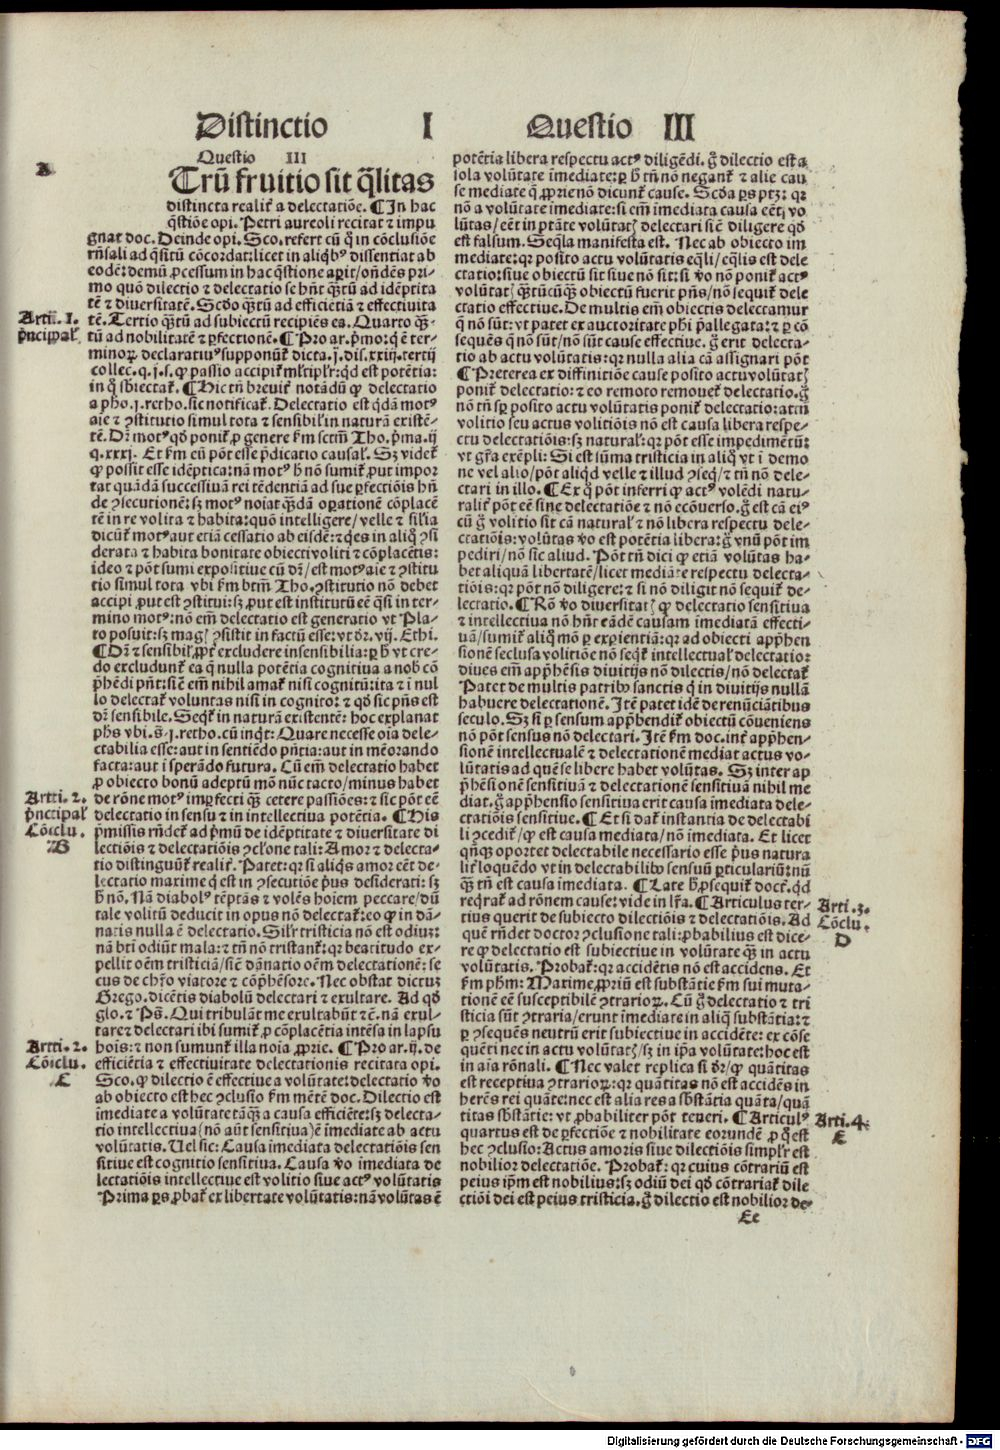 Distinctio I Questio III
Questio III
A
Trū fruitio sit q̄litas
distincta realit̄ a delectatiōe. ¶ In hac
q̄stiōe opi. Petri aureoli recitat ⁊ impu
gnat doc. Deinde opi. Sco. refert cū q̄ in cōclusiōe
rn̄sali ad q̄sitū cōcordat: licet in aliq̄bꝰ dissentiat ab
eodē: demū ꝓcessum in hac q̄stione aꝑit / on̄dēs pri-
mo quō dilectio ⁊ delectatio se hn̄t q̄ꝫtū ad idēptita
tē ⁊ diuersitatē. Scd̄o q̄ꝫtū ad efficiētiā ⁊ effectiuita
tē. Tertio q̄ꝫtū ad subiectū recipiēs ea. Quarto q̄ꝫ-
tū ad nobilitatē ⁊ ꝑfectionē. ¶ Pro ar. p̄mo: q̄ ē ter-
Arti. 1.
p̄ncipal̓
minoꝝ declaratiuꝰ supponūt̄ dicta .j. dis. xxij. tertij
collec. q. j. s. ꝙ passio accipit̄ ml̓tipl̓r: qd̓ est potētia:
in q̄ sb̓iectat̄. ¶ Hic tn̄ breuit̄ notādū ꝙ delectatio
a pho. j. retho. sic notificat̄. Delectatio est q̄dā motꝰ
aīe ⁊ ꝯstitutio simul tota ⁊ sensibil̓ in naturā existē-
tē. Dr̄ motꝰ qd̓ ponit̄ ꝓ genere fm̄ sctm̄ Tho. p̄ma. ij
q. xxxj. Et fm̄ eū pōt esse p̄dicatio causal̓. Sꝫ videt̄
ꝙ possit esse idēptica: nā motꝰ h̓ nō sumit̄ ꝓut impor
tat quādā successiuā rei tēdentiā ad sue ꝑfectiōis hn̄
de ꝯsecutionē: sꝫ motꝰ noīat q̄ꝫdā oꝑationē cōplacē
tē in re volita ⁊ habita: quō intelligere / velle ⁊ sil̓ia
dicūt̄ motꝰ aut etiā cessatio ab eisdē: ⁊ q̄es in aliq̄ ꝯsi
derata ⁊ habita bonitate obiecti voliti ⁊ cōplacētis:
ideo ⁊ pōt sumi expositiue cū dr̄ / est motꝰ aīe ⁊ ꝯstitu
tio simul tota vbi fm̄ btm̄ Tho. ꝯstitutio nō debet
accipi ꝓut est ꝯstitui: sꝫ ꝓut est institutū eē q̄si in ter-
mino motꝰ: nō em̄ delectatio est generatio vt Pla-
to posuit: sꝫ magꝭ ꝯsistit in factū esse: vt dr̄. vij. Ethi.
¶ Dr̄ ⁊ sensibil̓ ꝓpt̄ excludere insensibilia: ꝑ h̓ vt cre-
do excludunt̄ ea q̄ nulla potētia cognitiua a nob̓ cō
p̄hēdi pn̄t: sic̄ em̄ nihil amat̄ nisi cognitū: ita ⁊ ī nul
lo delectat̄ voluntas nisi in cognito: ⁊ qd̓ sic pn̄s est
dr̄ sensibile. Seqt̄ in naturā existentē: hoc explanat
phs vbi. s. j. retho. cū inq̄t: Quare necesse oīa dele-
ctabilia esse: aut in sentiēdo pn̄tia: aut in mēorando
facta: aut ī sperādo futura. Cū em̄ delectatio habet
ꝓ obiecto bonū adeptū mō nūc tacto / minus habet
Arti. 2.
p̄ncipal̓
Cōiclu.
B
de rōne motꝰ imꝑfecti q̄ꝫ cetere passiōes: ⁊ sic pōt eē
delectatio in sensu ⁊ in intellectiua potētia. ¶ His
p̄missis rn̄det̄ ad p̄mū de idēptitate ⁊ diuersitate di
lectiōis ⁊ delectatiōis ꝯcl̓one tali: Amor ⁊ delecta-
tio distinguūt̄ realit̄. Patet: qꝛ si aliq̄s amor eēt de-
lectatio maxime q̄ est in ꝯsecutiōe p̄us desiderati: sꝫ
h̓ nō. Nā diabolꝰ tēptās ⁊ volēs hoīem peccare / dū
tale volitū deducit in opus nō delectat̄: eo ꝙ in dā-
natis nulla ē delectatio. Sil̓r tristicia nō est odiuꝫ:
nā bt̄i odiūt mala: ⁊ tn̄ nō tristant̄: qꝛ beatitudo ex-
pellit oēm tristiciā / sic̄ dānatio oēm delectationē: se
cus de chr̄o viatore ⁊ cōp̄hēsore. Nec obstat dictuꝫ
Grego. dicētis diabolū delectari ⁊ exultare. Ad qd̓
glo. ⁊ Ps. Qui tribulāt me exultabūt ⁊ē. nā exul-
tare ⁊ delectari ibi sumit̄ ꝓ cōplacētia intēsa in lapsu
Arti. 2.
Cōiclu.
C
hoīs: ⁊ non sumunt̄ illa noīa ꝓprie. ¶ Pro ar. ij. de
efficiētia ⁊ effectiuitate delectationis recitata opi.
Sco. ꝙ dilectio ē effectiue a volūtate: delectatio v̓o
ab obiecto est hec ꝯclusio fm̄ mētē doc. Dilectio est
īmediate a volūtate tāq̄ꝫ a causa efficiēte: sꝫ delecta-
tio intellectiua (nō aūt sensitiua) ē imediate ab actu
volūtatis. Uel sic: Causa imediata delectatiōis sen
sitiue est cognitio sensitiua. Causa v̓o imediata de
lectatiōis intellectiue est volitio siue actꝰ volūtatis
Prima ꝑs ꝓbat̄ ex libertate volūtatis: nā volūtas ē
potētia libera respectu actꝰ diligēdi. g̓ dilectio est a
sola volūtate īmediate: ꝑ h̓ tn̄ nō negant̄ ⁊ alie cau
se mediate q̄ ꝓprie nō dicunt̄ cause. Scd̓a ꝑs ptꝫ: qꝛ
nō a volūtate imediate: si em̄ imediata causa eēt vo
lūtas / eēt in ptāte volūtatꝭ delectari sic̄ diligere qd̓
est falsum. Seq̄la manifesta est. Nec ab obiecto im
mediate: qꝛ posito actu volūtatis eq̄li / eq̄lis est dele
ctatio: siue obiectū sit siue nō sit: si v̓o nō ponit̄ actꝰ
volūtatꝭ q̄ꝫtūcūqꝫ obiectū fuerit pn̄s / nō sequit̄ dele
ctatio effectiue. De multis em̄ obiectis delectamur
q̄ nō sūt: vt patet ex auctoritate phi p̄allegata: ⁊ ꝑ cō
sequēs q̄ nō sūt / nō sūt cause effectiue. g̓ erit delecta-
tio ab actu volūtatis: qꝛ nulla alia cā assignari pōt
¶ Preterea ex diffinitiōe cause posito actu volūtatꝭ
ponit̄ delectatio: ⁊ eo remoto remouet̄ delectatio. g̓
nō tn̄ sꝑ posito actu volūtatis ponit̄ delectatio: attn̄
volitio seu actus volitiōis nō est causa libera respe-
ctu delectatiōis: sꝫ natural̓: qꝛ pōt esse impedimētū:
vt gr̄a exēpli: Si est sūma tristicia in aliq̄ vt ī demo
ne vel alio / pōt aliqd̓ velle ⁊ illud ꝯseq̄ / ⁊ tn̄ nō dele-
ctari in illo. ¶ Ex q̄ pōt inferri ꝙ actꝰ volēdi natu-
ralit̄ pōt eē sine delectatiōe ⁊ nō ecōuerso. g̓ est cā eiꝰ
cū g̓ volitio sit cā natural̓ ⁊ nō libera respectu dele-
ctatiōis: volūtas v̓o est potētia libera: g̓ vnū pōt im
pediri / nō sic aliud. Pōt tn̄ dici ꝙ etiā volūtas ha-
bet aliquā libertatē / licet mediāte respectu delecta-
tiōis: qꝛ pōt nō diligere: ⁊ si nō diligit nō sequit̄ de-
lectatio. ¶ Rō v̓o diuersitatꝭ ꝙ delectatio sensitiua
⁊ intellectiua nō hn̄t eādē causam imediatā effecti-
uā / sumit̄ aliq̄ mō ꝑ exꝑientiā: qꝛ ad obiecti app̄hen
sionē seclusa volitiōe nō seqt̄ intellectual̓ delectatio:
diues em̄ app̄hēsis diuitijs nō dilectis / nō delectat̄
Patet de multis patribꝰ sanctis q̄ in diuitijs nullā
habuere delectationē. Itē patet idē de renūciātibus
seculo. Sꝫ si ꝑ sensum app̄hendit̄ obiectū cōueniens
nō pōt sensus nō delectari. Itē fm̄ doc. int̄ app̄hen-
sionē intellectualē ⁊ delectationē mediat actus vo-
lūtatis ad quē se libere habet volūtas. Sꝫ inter ap
p̄hēsionē sensitiuā ⁊ delectationē sensitiuā nihil me
diat. g̓ app̄hensio sensitiua erit causa imediata dele-
ctatiōis sensitiue. ¶ Et si dat̄ instantia de delectabi
li ꝯcedit̄ / ꝙ est causa mediata / nō imediata. Et licet
qn̄qꝫ oportet delectabile necessario esse p̄us natura
lit̄ loquēdo vt in delectabilibꝰ sensuū ꝑticulariū: nū
q̄ꝫ tn̄ est causa imediata. ¶ Late h̓ ꝓsequit̄ doct̄. qd̓
reqrat̄ ad rōnem cause: vide in lr̄a. ¶ Articulus ter-
Arti. 3.
Cōclu.
D
tius querit de subiecto dilectiōis ⁊ delectatiōis. Ad
quē rn̄det doctoꝛ ꝯclusione tali: ꝓbabilius est dice-
re ꝙ delectatio est subiectiue in volūtate q̄ꝫ in actu
volūtatis. Probat̄: qꝛ accidētis nō est accidens. Et
fm̄ phm̄: Maxime ꝓpriū est substātie fm̄ sui muta-
tionē eē susceptibilē ꝯtrarioꝝ. Cū g̓ delectatio ⁊ tri
sticia sūt ꝯtraria / erunt imediate in aliq̄ substātia: ⁊
ꝑ ꝯsequēs neutrū erit subiectiue in accidēte: ex cōse
quēti nec in actu volūtatꝭ / sꝫ in ip̄a volūtate: hoc est
in aīa rōnali. ¶ Nec valet replica si dr̄ / ꝙ quātitas
est receptiua ꝯtrarioꝝ: qꝛ quātitas nō est accidēs in
herēs rei quāte: nec est alia res a sb̓stātia quāta / quā
titas sb̓stātie: vt ꝓbabiliter pōt teneri. ¶ Articulꝰ
Arti. 4.
E
quartus est de ꝑfectiōe ⁊ nobilitate eorundē ꝓ q̄ est
hec ꝯclusio: Actus amoris siue dilectiōis simpl̓r est
nobilior delectatiōe. Probat̄: qꝛ cuius cōtrariū est
peius ip̄m est nobilius: sꝫ odiū dei qd̓ cōtrariat̄ dile
ctiōi dei est peius tristicia. g̓ dilectio est nobilior de-
Ee
Digitalisierung gefördert durch die Deutsche Forschungsgemeinschaft - DFG